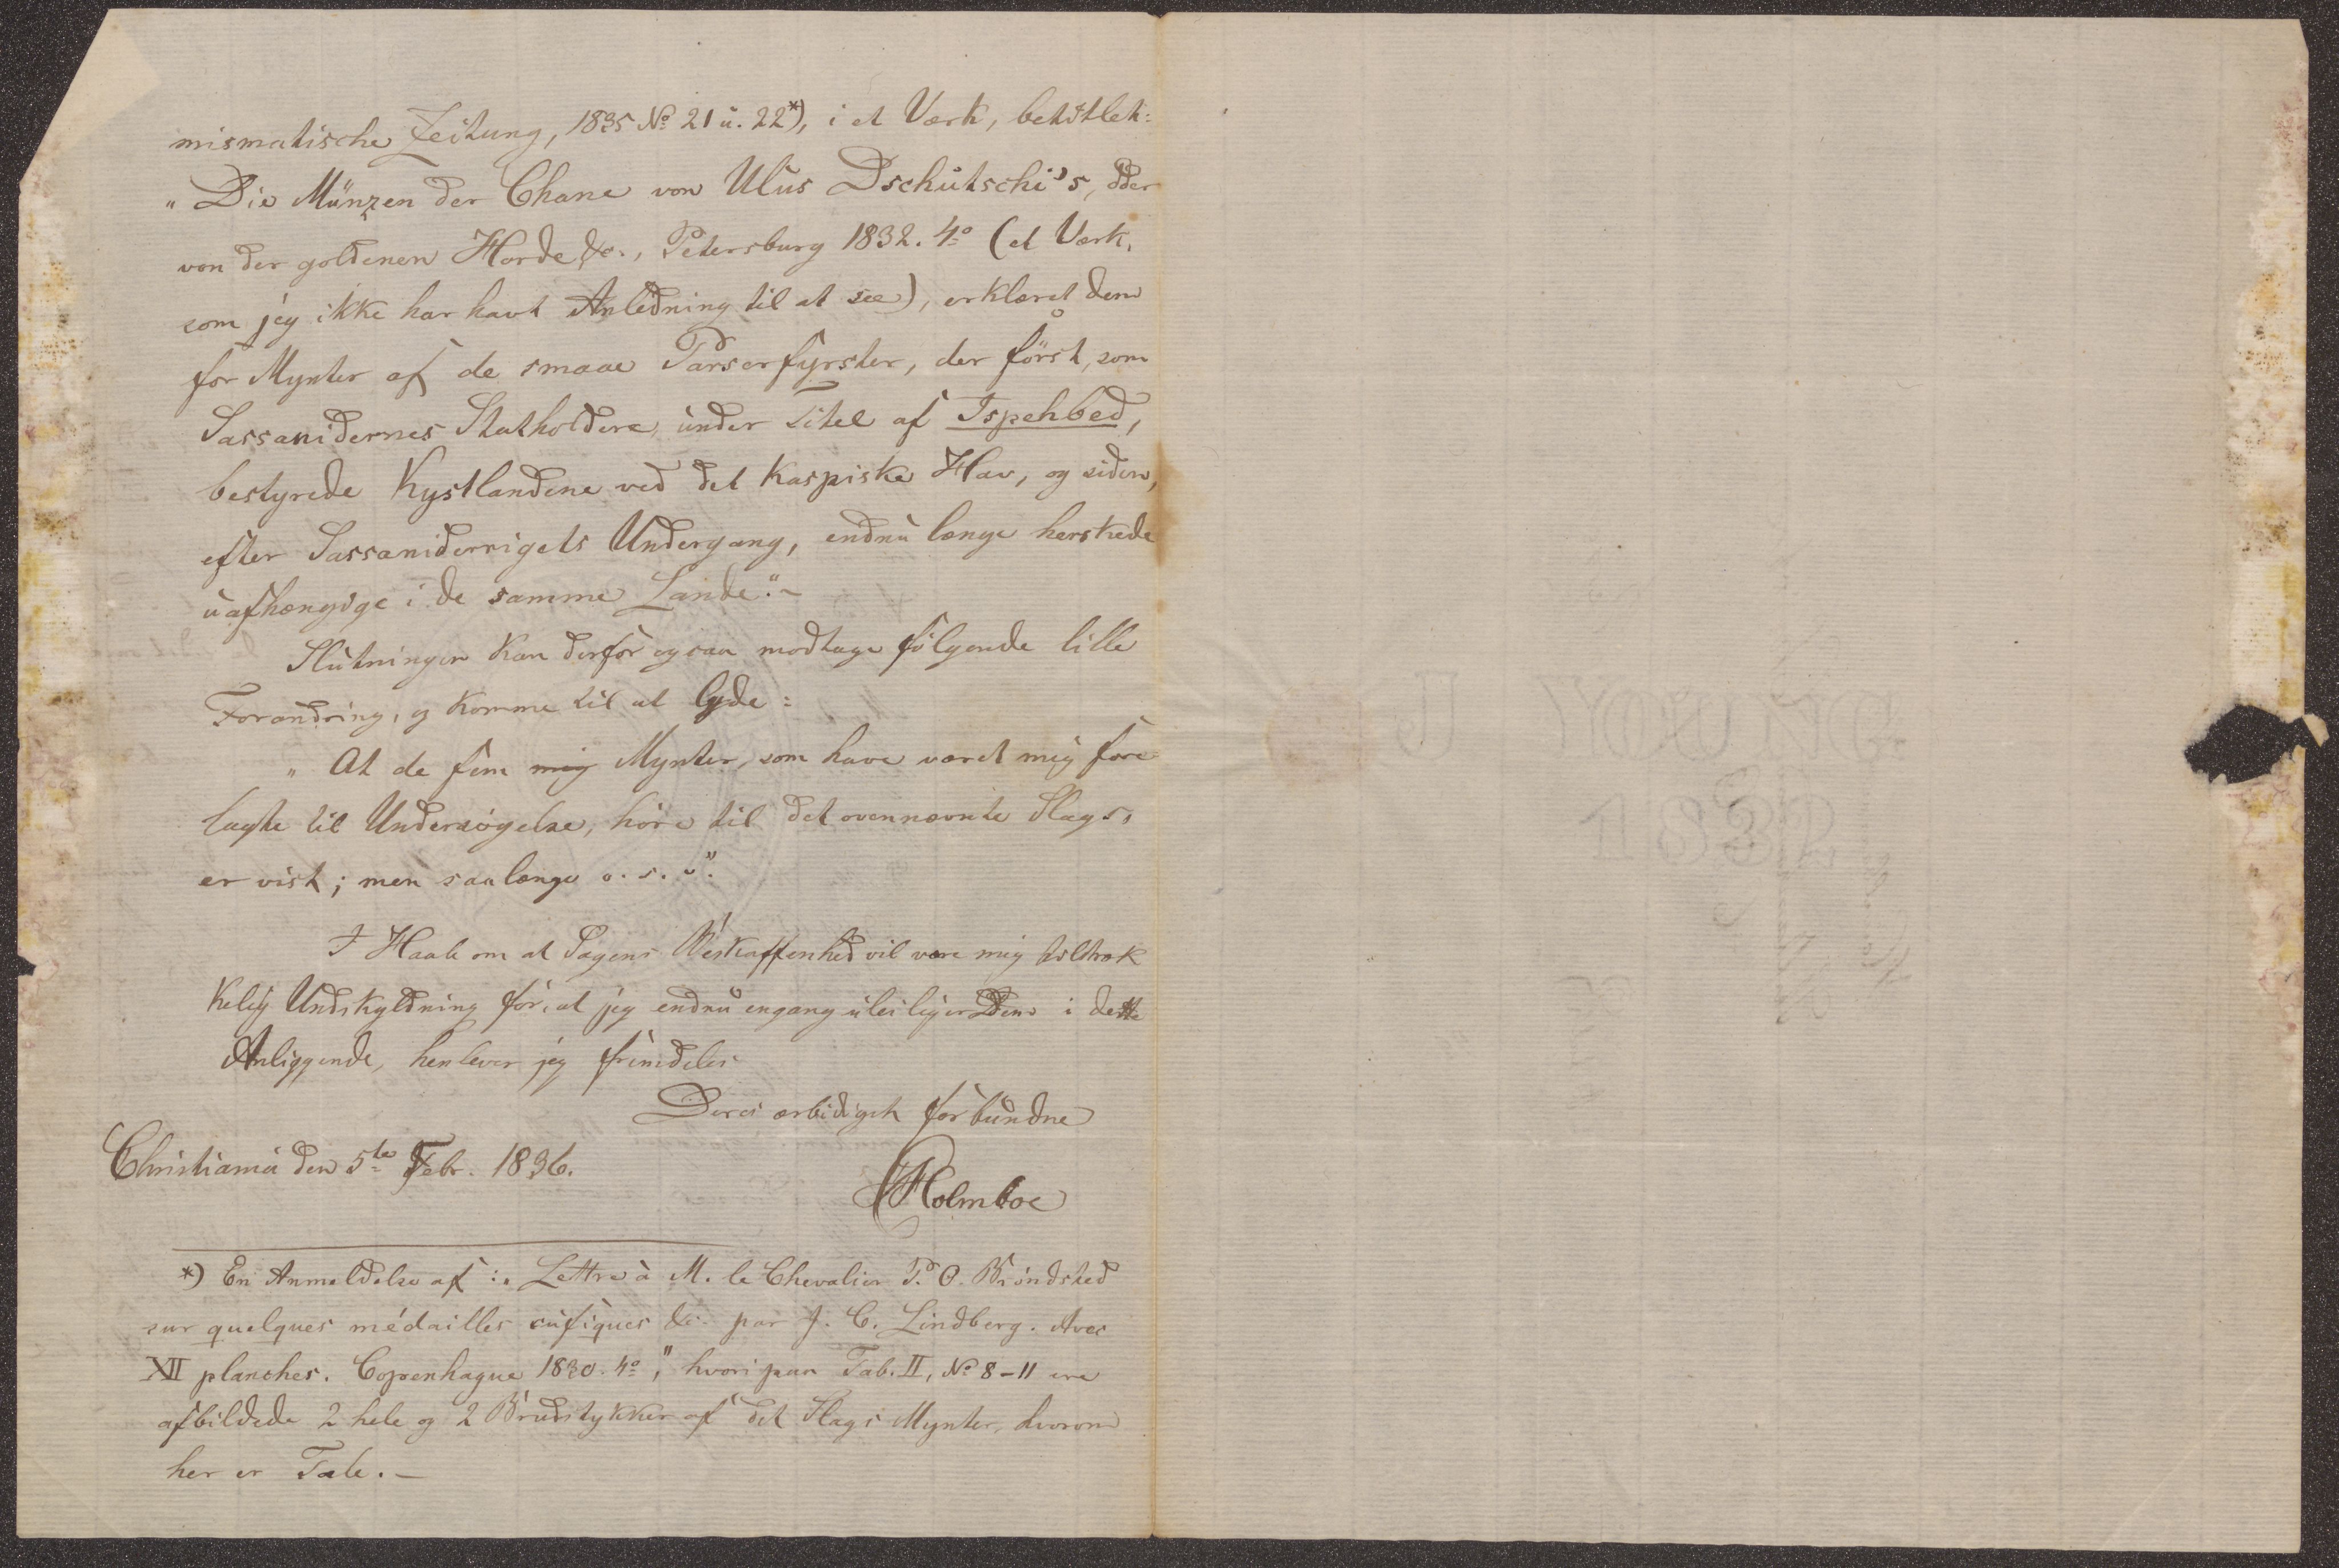 mismatische Zeitung, 1835 No 21 u. 22*), i et Værk, betitlet:
„Die Münzen der Chane von Ulus Dschutschi's, oder
von der goldenen Horde &c., Petersburg 1832. 4o (et Værk,
som jeg ikke har havt Anledning til at see), erklæret dem
for Mynter af de smaae Parserfyrster, der först, som
Sassanidernes Statholdere, under Titel af Ispehbed,
bestyrede Kystlandene ved det Kaspiske Hav, og siden,
efter Sassaniderrigets Undergang, endnu længe herskede
uafhængige i de samme Lande."-
Slutningen kan derfor ogsaa modtage fölgende lille
Forandring, og komme til at lyde:
„At de fem mig Mynter, som have været mig fore
lagte til Undersögelse, höre til det ovennævnte Slags,
er vist; men saalænge o. s. v."
I Haab om at Sagens Beskaffenhed vil være mig tilstræk
kelig Undskyldning for, at jeg endnu engang uleiliger Dem i dette
Anliggende, henlever jeg fremdeles
Deres ærbödigst forbundne
Christiania den 5te Febr. 1836.
Holmboe
*) En Anmeldelse af: „Lettre à M. le Chevalier P. O. Bröndsted
sur quelques médailles cufiques &c. par J. C. Lindberg. Avec
XII planches. Copenhague 1830. 4o," hvori paa Tab. II, No 8-11 ere
afbildede 2 hele og 2 Brudstykker af det Slags Mynter, hvorom
her er Tale.-
J YOUNG
1832